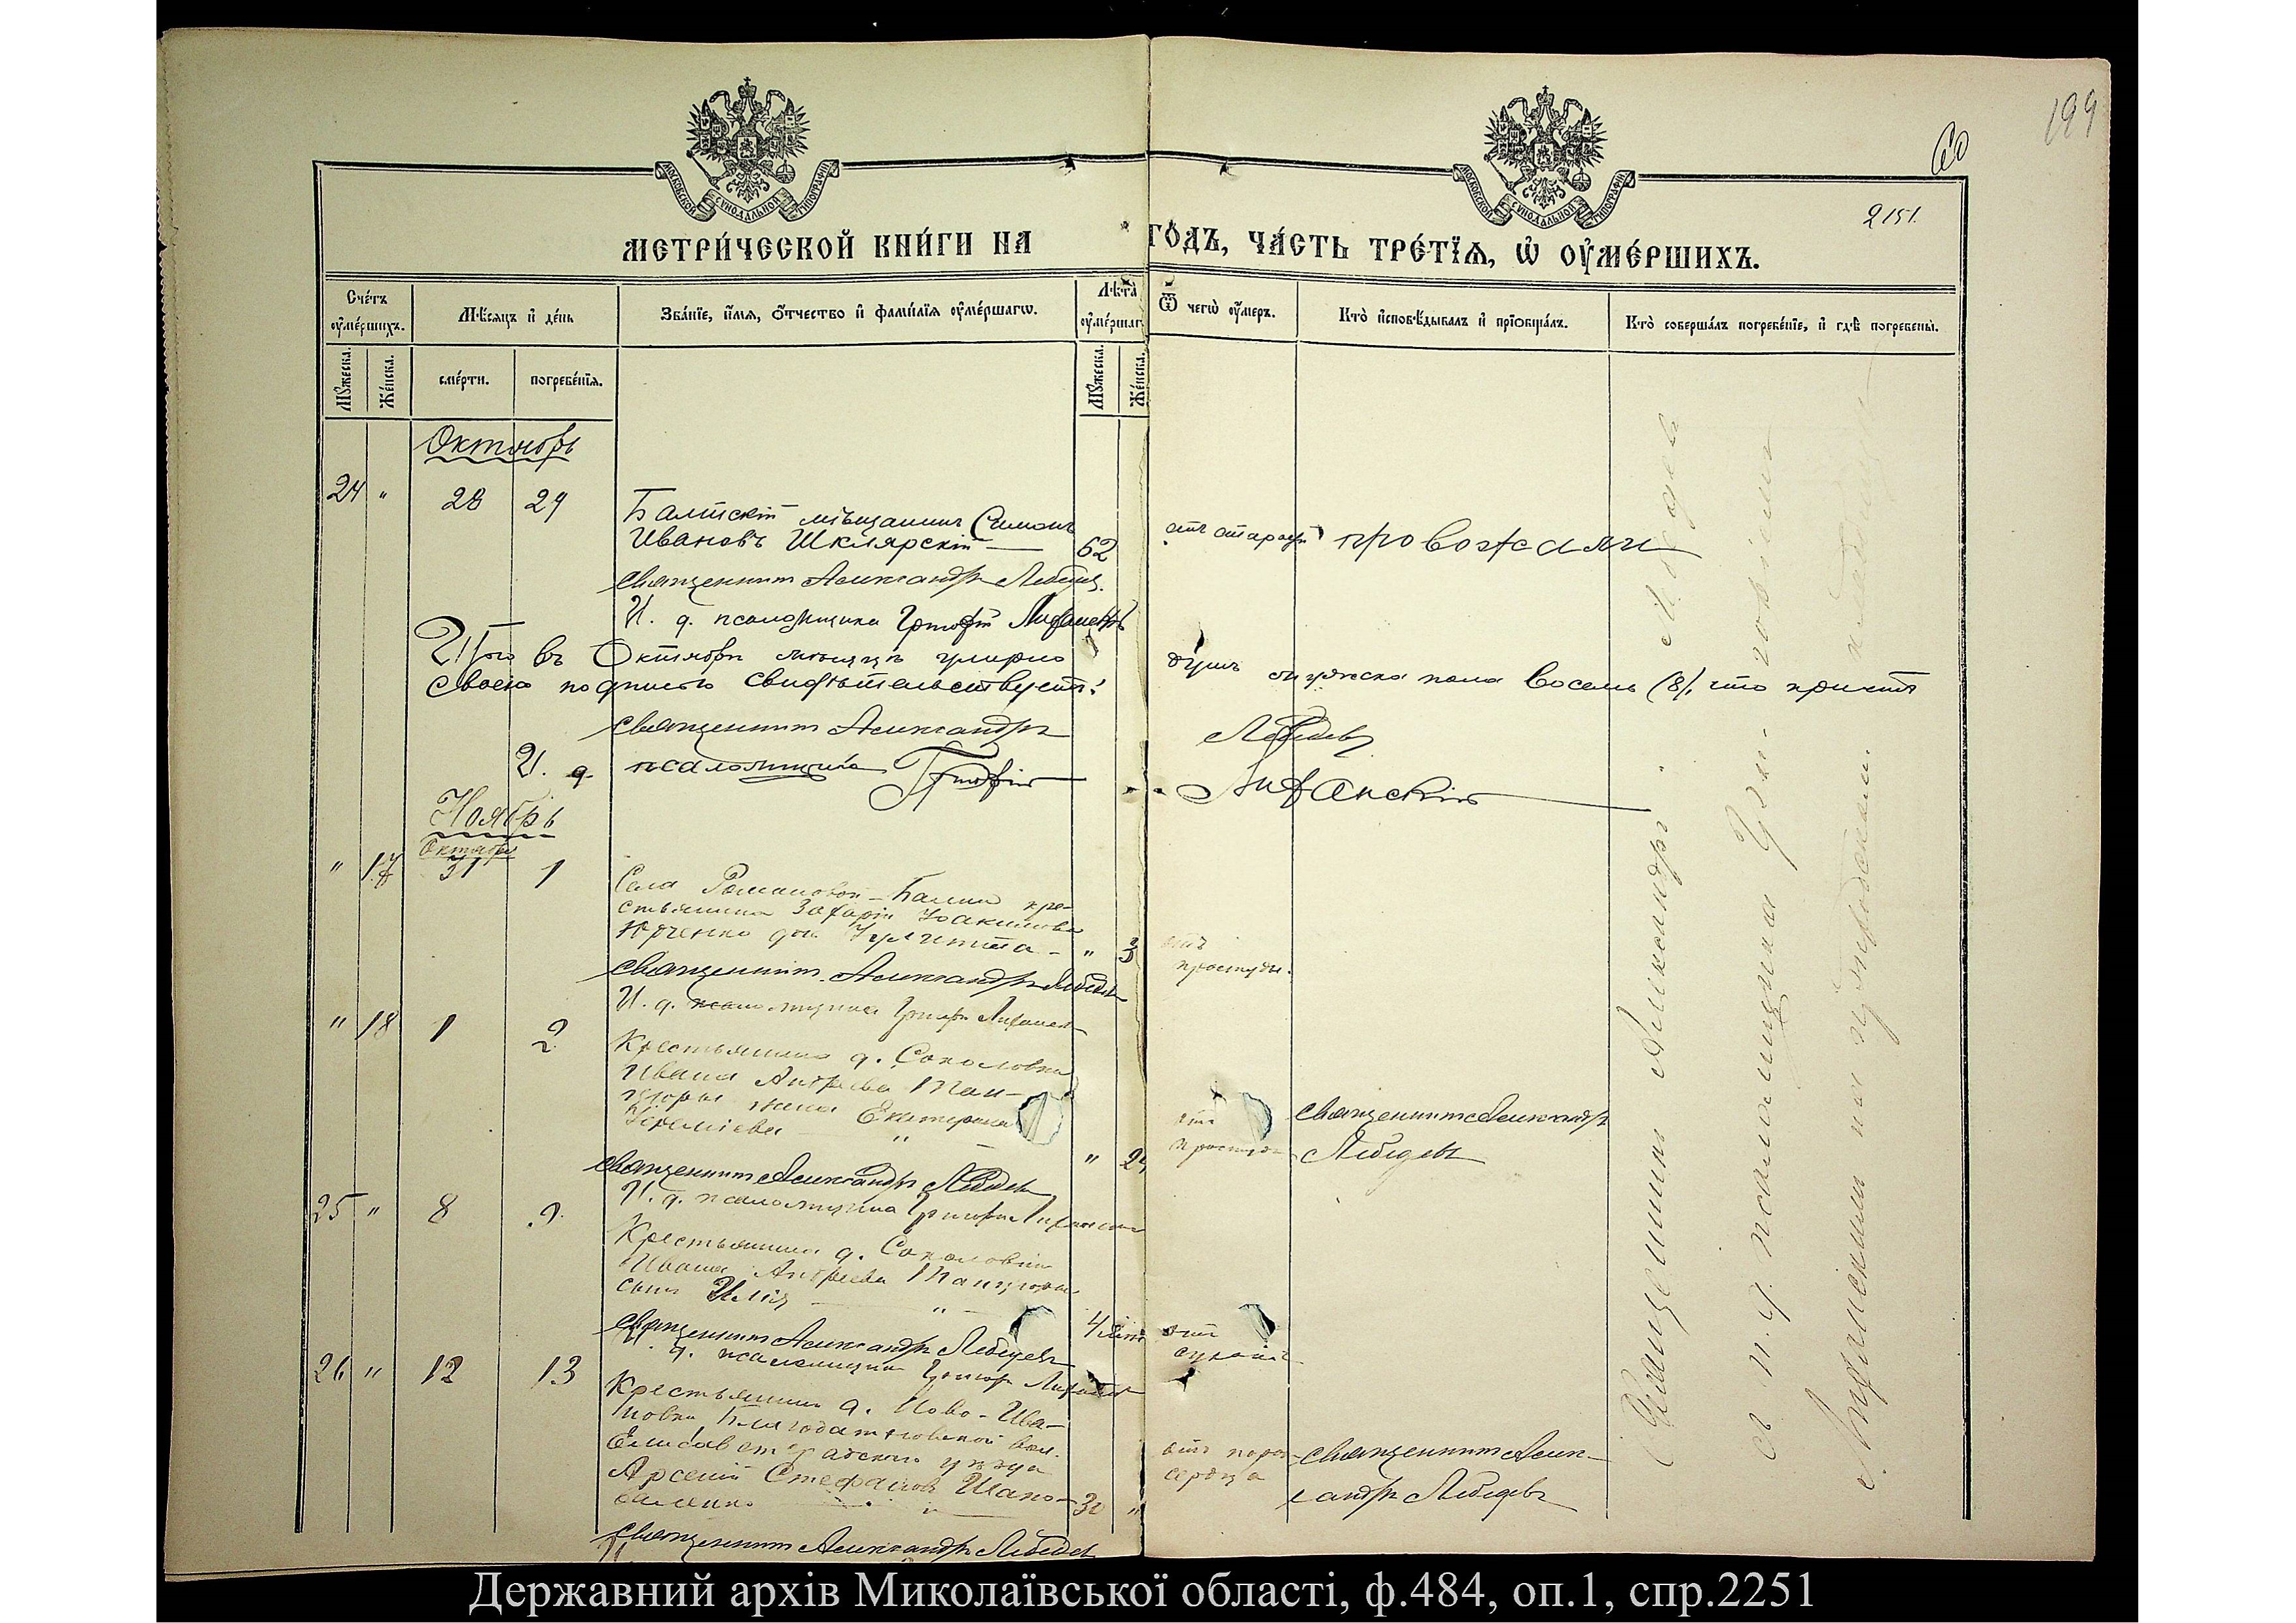 199
60
2151.
МОСКОВСКОЙ СУНОДАЛЬНОЙ ТИПОГРАФІИ
МОСКОВСКОЙ СУНОДАЛЬНОЙ ТИПОГРАФІИ
МЕТРИ́ЧЕСКОЙ КНИ́ГИ НА ГО́ДЪ, ЧА́СТЬ ТРЕ́ТЇѦ, Ѡ҆ ОУ҆МЕ́РШИХЪ.
Сче́тъ оу҆ме́ршихъ.
Мѣ́сяцъ и҆ де́нь
Зва́нїе, и҆́мя, ѻ҆́тчество и҆ фамі́лїя оу҆ме́ршагѡ.
Лѣ́та оу҆ме́ршаг
Ѿ чегѡ̀ оу҆́меръ.
Кто̀ и҆сповѣ́дывалъ и҆ прїѡбща́лъ.
Кто̀ соверша́лъ погребе́нїе, и҆ гдѣ̀ погребены̀.
Мꙋ́жеска.
Же́нска.
сме́рти.
погребе́нїя.
Мꙋ́жеска.
Же́нска.
Октябрь
24 " 28 29
Балтскій мѣщанинъ Симонъ
Ивановъ Шклярскій — 62
отъ старости провожали
Священникъ Александръ Лебедев
И. д. псаломщика Григорій Лифанскій
Итого въ Октябрѣ мѣсяцѣ умерло душъ мужеска пола восемь (8), что причтъ
своею подписью свидѣтельствуетъ:
Священникъ Александръ Лебедевъ
И. д. псаломщика Григорій Лифанскій
Ноябрь
Октября
" 17 31 1
Села Романовой-Балки кре-
стьянина Захарія Іоакимова
Юрченко дочь — " 3
отъ
простуды.
Священникъ Александръ Лебедевъ
И. д. псаломщика Григорій Лифанскій
" 18 1 2
Крестьянина д. Соколовки
Ивана Андреева
жена Екатерина
" 29
отъ
простуды
Священникъ Александръ
Лебедевъ
Священникъ Александръ Лебедевъ
И. д. псаломщика Григорій Лифанскій
25 " 8 9
Крестьянина д. Соколовки
Ивана Андреева
сынъ Илія — " —
4
отъ
Священникъ Александръ Лебедевъ
И. д. псаломщика Григорій Лифанскій
26 " 12 13
Крестьянинъ д. Ново-Ива-
новки Благодатновской вол.
Елисаветградскаго уѣзда
Арсеній Стефановъ Шапо-
валенко 30 "
отъ порока
сердца
Священникъ Алек-
сандръ Лебедевъ
Священникъ Александръ Лебедевъ
Священникъ Александръ Лебедевъ
съ и. д. псаломщика Григоріемъ
Лифанскимъ на кладбищѣ
Державний архів Миколаївської області, ф.484, оп.1, спр.2251